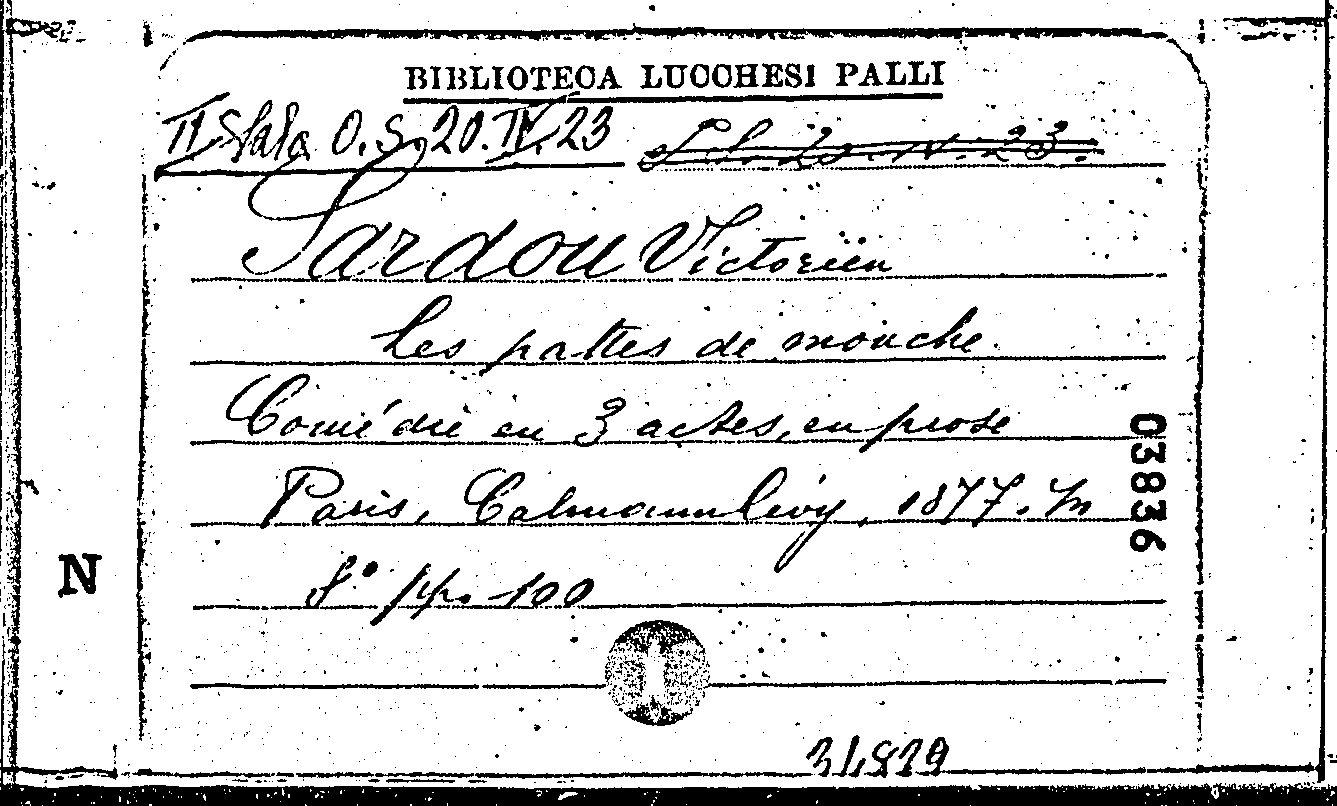 BIBLIOTECA LUCCHESI PALLI
II Sala O.S. 20.IV.23
Sardou Victorien
Les pattes de mouche
Comédie en 3 actes, en prose
Paris, Calmann Lévy, 1877. In
8° pp. 100
03836
N